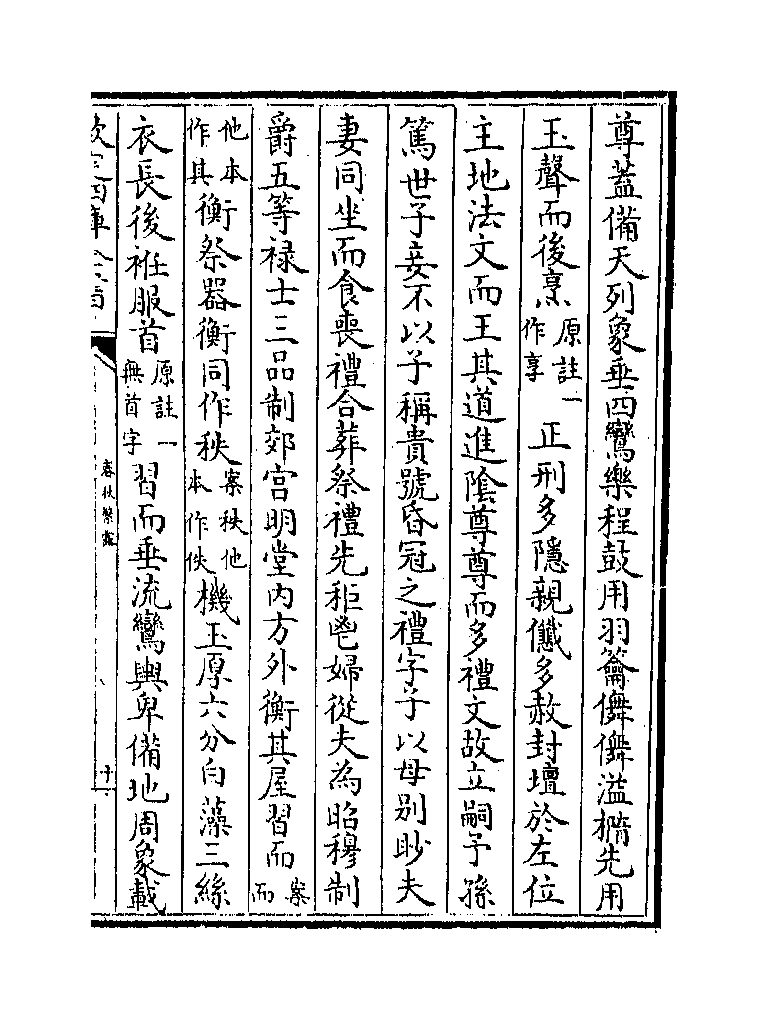 尊蓋備天列象垂四鸞樂程鼓用羽籥儛儛溢櫩先用
玉聲而後烹原註一作享正刑多隱親懺多赦封壇於左位
主地法文而王其道進陰尊尊而多禮文故立嗣予孫
篤世子妾不以子稱貴號昏冠之禮字子以母別眇夫
妻同坐而食喪禮合葬祭禮先秬鬯婦從夫為昭穆制
爵五等祿士三品制郊宮明堂內方外衡其屋習而案而
他本作其衡祭器衡同作秩案秩他本作佚機玉厚六分白藻三絲
衣長後袵服首原註一無首字習而垂流鸞輿卑備地周象載
欽定四庫全書
春秋繁露
十